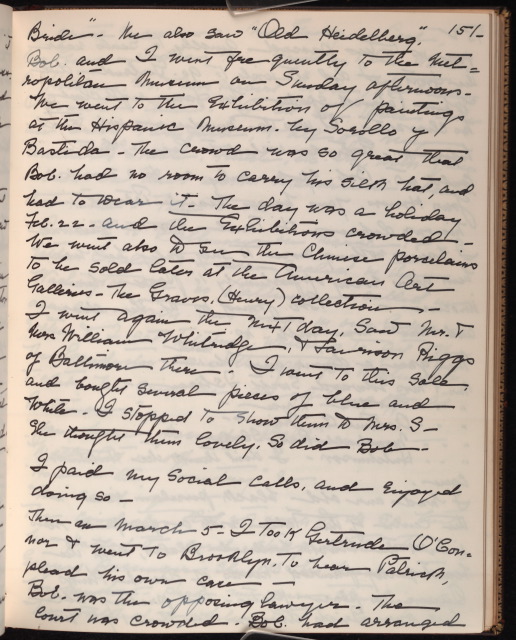 151-
Bride". We also saw "Old Heidelberg".
Bob. and I went frequently to the Met=
ropolitan Museum on Sunday afternoons-
We went to the Exhibition of paintings
at the Hispanic Museum. by Sorollo y
Bastida - The crowd was so great that
Bob. had no room to carry his silk hat, and
had to wear it - The day was a holiday
Feb. 22 - and the Exhibitions crowded -
We went also to see the Chinese porcelains
to be sold later at the American Art
Galleries - The Graves, (Henry) collection -
I went again the next day, Saw Mr. &
Mrs William Whitridge, & Lawrason Riggs
of Baltimore there. I went to this Sale,
and bought several pieces of blue and
White. I stopped to show them to Mrs. S-
She thought them lovely. So did Bob -
I paid my Social Calls, and Enjoyed
doing so -
Then on March 5 - I took Gertrude (O'Con-
nor & went to Brooklyn, to hear Patrick,
plead his own case -
Bob. was the opposing lawyer. The
Court was crowded. Bob. had arranged